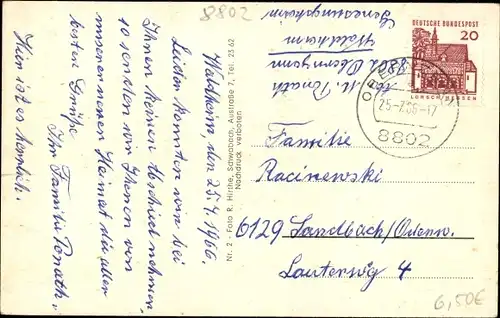 8802
Waldheim, den 25.7.1966.
Leider konnten wir bei
Ihnen keinen Abschied nehmen
so senden wir Ihnen von
unserer neuen Heimat die allerbesten
Grüße
Ihr Familie Ponath,
Hier ist es herrlich.
Nr. 2 - Foto R. Hirthe, Schwabach, Austraße 7, Tel. 25 62
Nachdruck verboten
Abs. M. Ponath
8802
Waldheim
Genesungsheim
DEUTSCHE BUNDESPOST
20
LORSCH/HESSEN
25-7.66-17
8802
Familie
Racinewski
6129 Sandbach/Odenw.
Lauterweg 4
6,50€